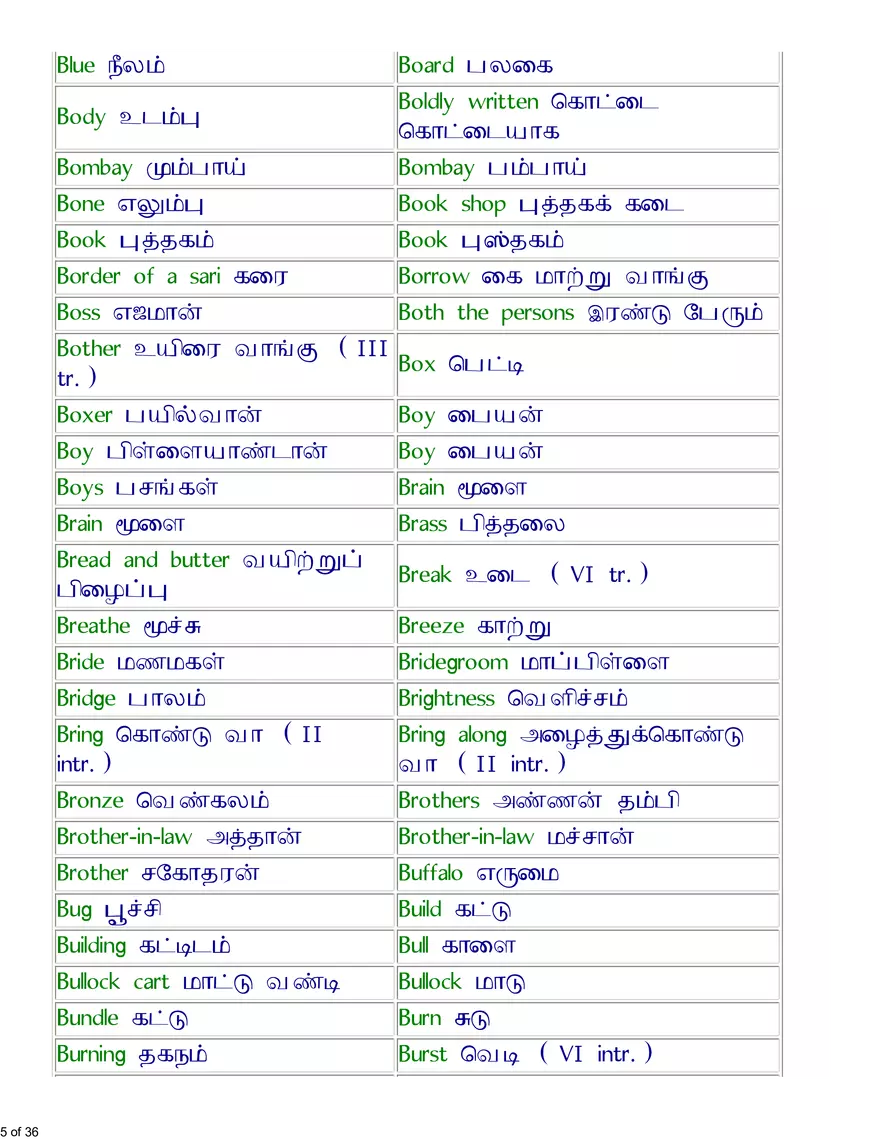 Blue நீலம்
Board பலகை
Body உடம்பு
Boldly written கொட்டை
கொட்டையாக
Bombay மும்பாய்
Bombay பம்பாய்
Bone எலும்பு
Book shop புத்தகக் கடை
Book புத்தகம்
Book புஸ்தகம்
Border of a sari கரை
Borrow கை மாற்று வாங்கு
Boss எஜமான்
Both the persons இரண்டு பேரும்
Bother உயிரை வாங்கு ( III
tr. )
Box பெட்டி
Boxer பயில்வான்
Boy பையன்
Boy பிள்ளையாண்டான்
Boy பையன்
Boys பசங்கள்
Brain மூளை
Brain மூளை
Brass பித்தலை
Bread and butter வயிற்றுப்
பிழைப்பு
Break உடை ( VI tr. )
Breathe மூச்சு
Breeze காற்று
Bride மணமகள்
Bridegroom மாப்பிள்ளை
Bridge பாலம்
Brightness வெளிச்சம்
Bring கொண்டு வா ( II
intr. )
Bring along அழைத்துக்கொண்டு
வா ( II intr. )
Bronze வெண்கலம்
Brothers அண்ணன் தம்பி
Brother-in-law அத்தான்
Brother-in-law மச்சான்
Brother சகோதரன்
Buffalo எருமை
Bug பூச்சி
Build கட்டு
Building கட்டிடம்
Bull காளை
Bullock cart மாட்டு வண்டி
Bullock மாடு
Bundle கட்டு
Burn சுடு
Burning தகநம்
Burst வெடி ( VI intr. )
5 of 36